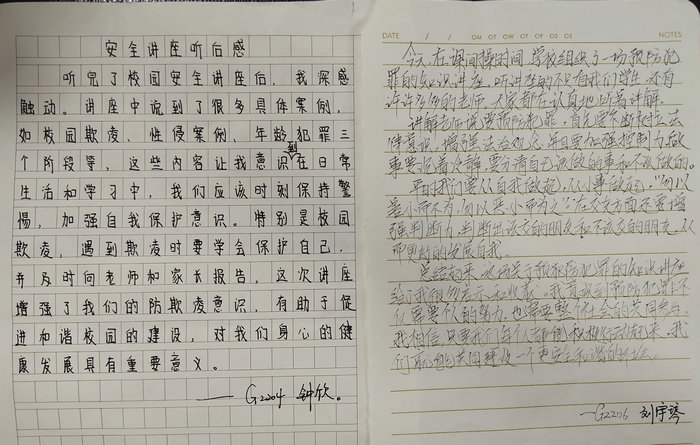 安全讲座听后感
听完了校园安全讲座后，我深感
触动。讲座中说到了很多具体案例，
如校园欺凌、性侵案例、年龄犯罪三
个阶段等，这些内容让我意识到在日常
生活和学习中，我们应该时刻保持警
惕，加强自我保护意识。特别是校园
欺凌，遇到欺凌时要学会保护自己，
并及时向老师和家长报告，这次讲座
增强了我们的防欺凌意识，有助于促
进和谐校园的建设，对我们身心的健
康发展具有重要意义。
——G2204 钟欣。
DATE / / OM OT OW OT OF OS OS NOTES
今天，在课间操时间，学校组织了一场预防犯
罪的知识讲座，听讲座的不只有我们学生，还有
许许多多的老师，大家都在认真地听着讲解。
讲解老师说要预防犯罪，首先要树立法
律意识，增强法治观念，并且要加强控制力，做
事要保持冷静，要分清自己该做的事和不该做的。
平时我们要从自我做起，从小事做起，“勿以
善小而不为，勿以恶小而为之”在交友方面还要增
强判断力，判断出该交的朋友和不该交的朋友，从
而更好的发展自我。
总结起来，这次关于预防犯罪的知识讲座
给了我很多启示和收获。我意识到预防犯罪不
仅需要个人的努力，也需要整个社会的共同参与。
我相信，只要我们每个人都积极行动起来，我
们就能共同建设一个更安全和谐的社会。
——G2206 刘宇琴